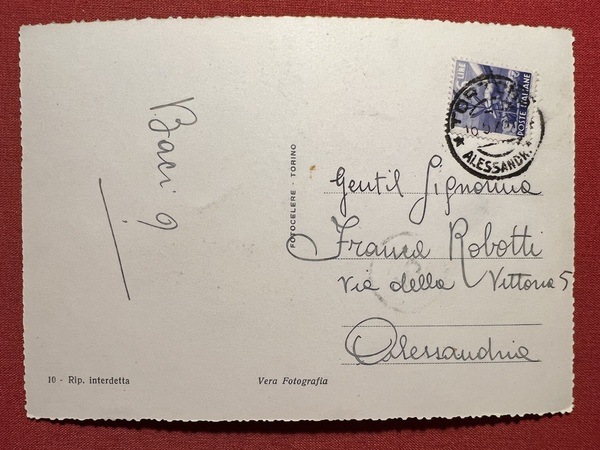 Baci 9
FOTOCELERE - TORINO
LIRE
POSTE ITALIANE
★ ALESSANDR. ★
Gentil Signorina
Franca Robotti
Via della Vittoria 5
Alessandria
10 - Rip. interdetta
Vera Fotografia